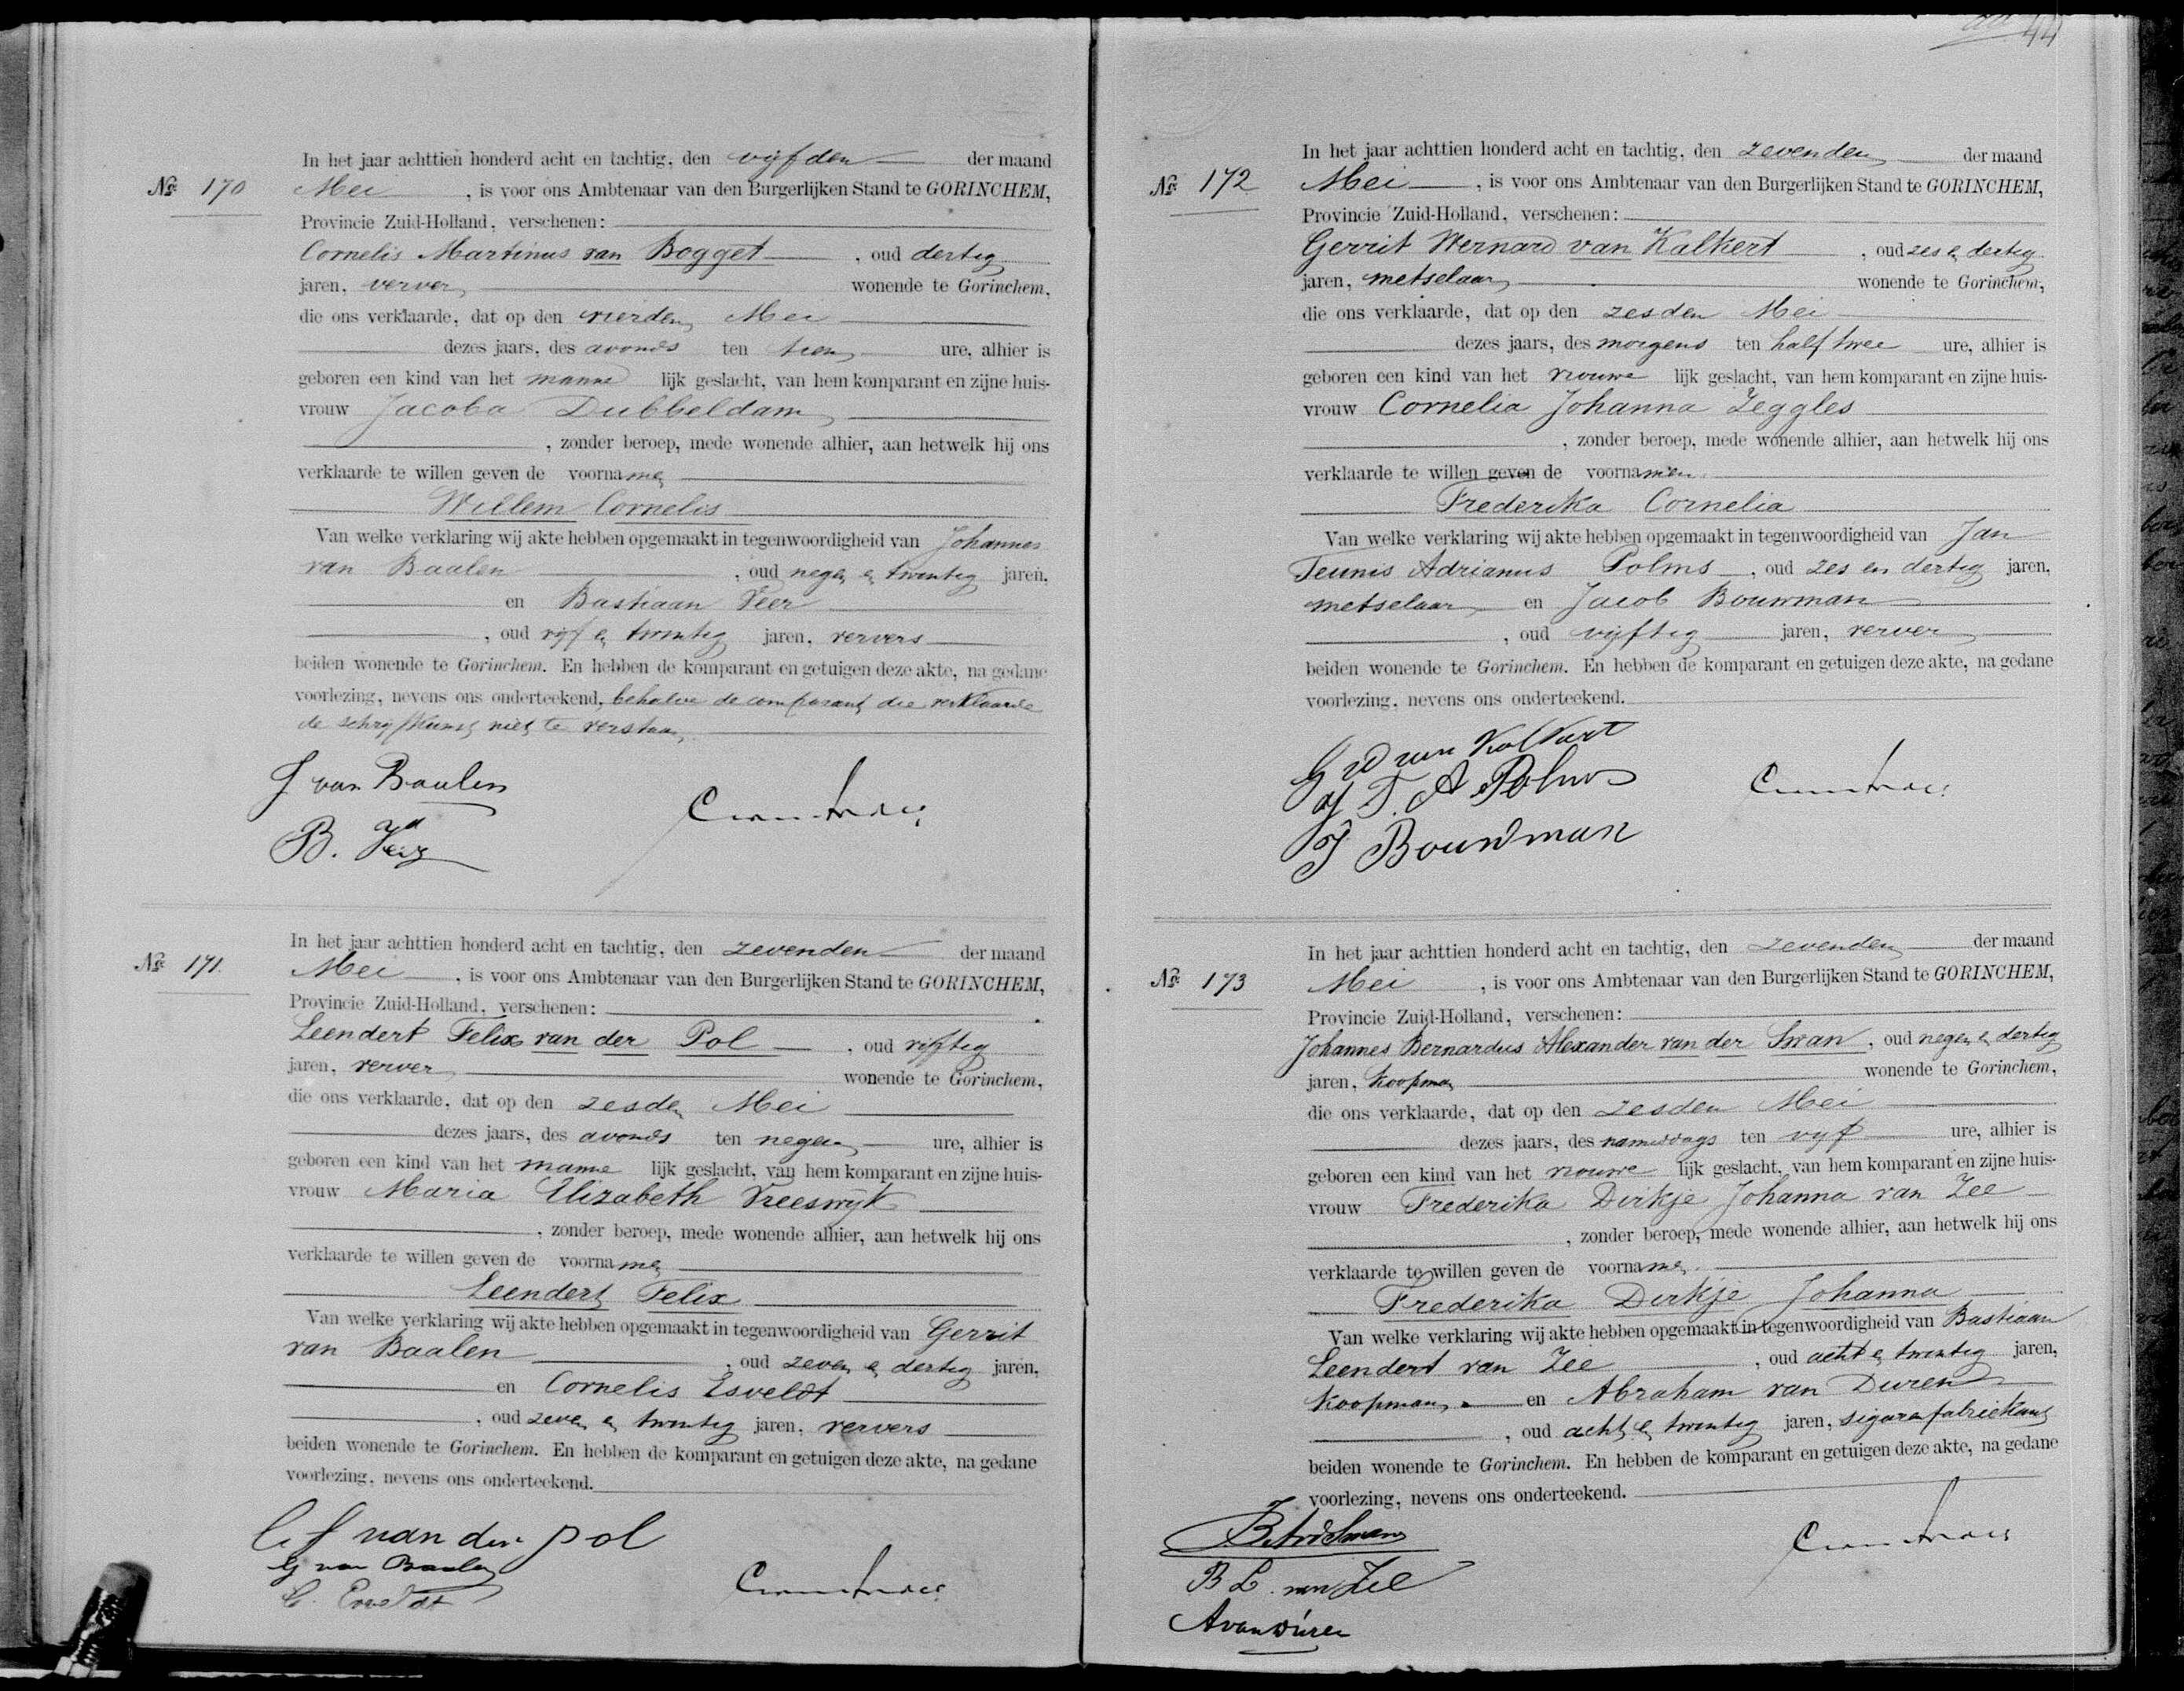 44
In het jaar achttien honderd acht en tachtig, den vijfden der maand
No. 170 Mei, is voor ons Ambtenaar van den Burgerlijken Stand te GORINCHEM,
Provincie Zuid-Holland, verschenen:
Cornelis Martinus van Bogget, oud dertig
jaren, verver wonende te Gorinchem,
die ons verklaarde, dat op den vierden Mei
dezes jaars, des avonds ten tien ure, alhier is
geboren een kind van het manne lijk geslacht, van hem komparant en zijne huis-
vrouw Jacoba Dubbeldam
, zonder beroep, mede wonende alhier, aan hetwelk hij ons
verklaarde te willen geven de voornamen
Willem Cornelis
Van welke verklaring wij akte hebben opgemaakt in tegenwoordigheid van Johannes
van Baalen, oud negen en twintig jaren,
en Bastiaan Veer
, oud vijf en twintig jaren, ververs
beiden wonende te Gorinchem. En hebben de komparant en getuigen deze akte, na gedane
voorlezing, nevens ons onderteekend, behalve de comparant die verklaarde
de schrijfkunst niet te verstaan
J van Baalen
B. Veer
In het jaar achttien honderd acht en tachtig, den zevenden der maand
No. 171. Mei, is voor ons Ambtenaar van den Burgerlijken Stand te GORINCHEM,
Provincie Zuid-Holland, verschenen:
Leendert Felix van der Pol, oud vijftig
jaren, verver wonende te Gorinchem,
die ons verklaarde, dat op den zesden Mei
dezes jaars, des avonds ten negen ure, alhier is
geboren een kind van het manne lijk geslacht, van hem komparant en zijne huis-
vrouw Maria Elizabeth Vreeswijk
, zonder beroep, mede wonende alhier, aan hetwelk hij ons
verklaarde te willen geven de voornamen
Leendert Felix
Van welke verklaring wij akte hebben opgemaakt in tegenwoordigheid van Gerrit
van Baalen, oud zeven en dertig jaren,
en Cornelis Esveldt
, oud zeven en twintig jaren, ververs
beiden wonende te Gorinchem. En hebben de komparant en getuigen deze akte, na gedane
voorlezing, nevens ons onderteekend.
L f van der pol
G van Baalen
C. Esveldt
In het jaar achttien honderd acht en tachtig, den zevenden der maand
No. 172 Mei, is voor ons Ambtenaar van den Burgerlijken Stand te GORINCHEM,
Provincie Zuid-Holland, verschenen:
Gerrit Wernard van Kalkert, oud zes en dertig
jaren, metselaar wonende te Gorinchem,
die ons verklaarde, dat op den zesden Mei
dezes jaars, des morgens ten half twee ure, alhier is
geboren een kind van het vrouwe lijk geslacht, van hem komparant en zijne huis-
vrouw Cornelia Johanna Zeggles
, zonder beroep, mede wonende alhier, aan hetwelk hij ons
verklaarde te willen geven de voornamen
Frederika Cornelia
Van welke verklaring wij akte hebben opgemaakt in tegenwoordigheid van Jan
Teunis Adrianus Polms, oud zes en dertig jaren,
metselaar en Jacob Bouwman
, oud vijftig jaren, verver
beiden wonende te Gorinchem. En hebben de komparant en getuigen deze akte, na gedane
voorlezing, nevens ons onderteekend.
G W van Kalkert
J T. A Polms
J Bouwman
In het jaar achttien honderd acht en tachtig, den zevenden der maand
No. 173 Mei, is voor ons Ambtenaar van den Burgerlijken Stand te GORINCHEM,
Provincie Zuid-Holland, verschenen:
Johannes Bernardus Alexander van der Swan, oud negen en dertig
jaren, koopman wonende te Gorinchem,
die ons verklaarde, dat op den zesden Mei
dezes jaars, des namiddags ten vijf ure, alhier is
geboren een kind van het vrouwe lijk geslacht, van hem komparant en zijne huis-
vrouw Frederika Dirkje Johanna van Zee
, zonder beroep, mede wonende alhier, aan hetwelk hij ons
verklaarde te willen geven de voornamen
Frederika Dirkje Johanna
Van welke verklaring wij akte hebben opgemaakt in tegenwoordigheid van Bastiaan
Leendert van Zee, oud acht en twintig jaren,
koopman en Abraham van Duren
, oud acht en twintig jaren, sigarenfabriekant
beiden wonende te Gorinchem. En hebben de komparant en getuigen deze akte, na gedane
voorlezing, nevens ons onderteekend.
B L. van Zee
A van Duren